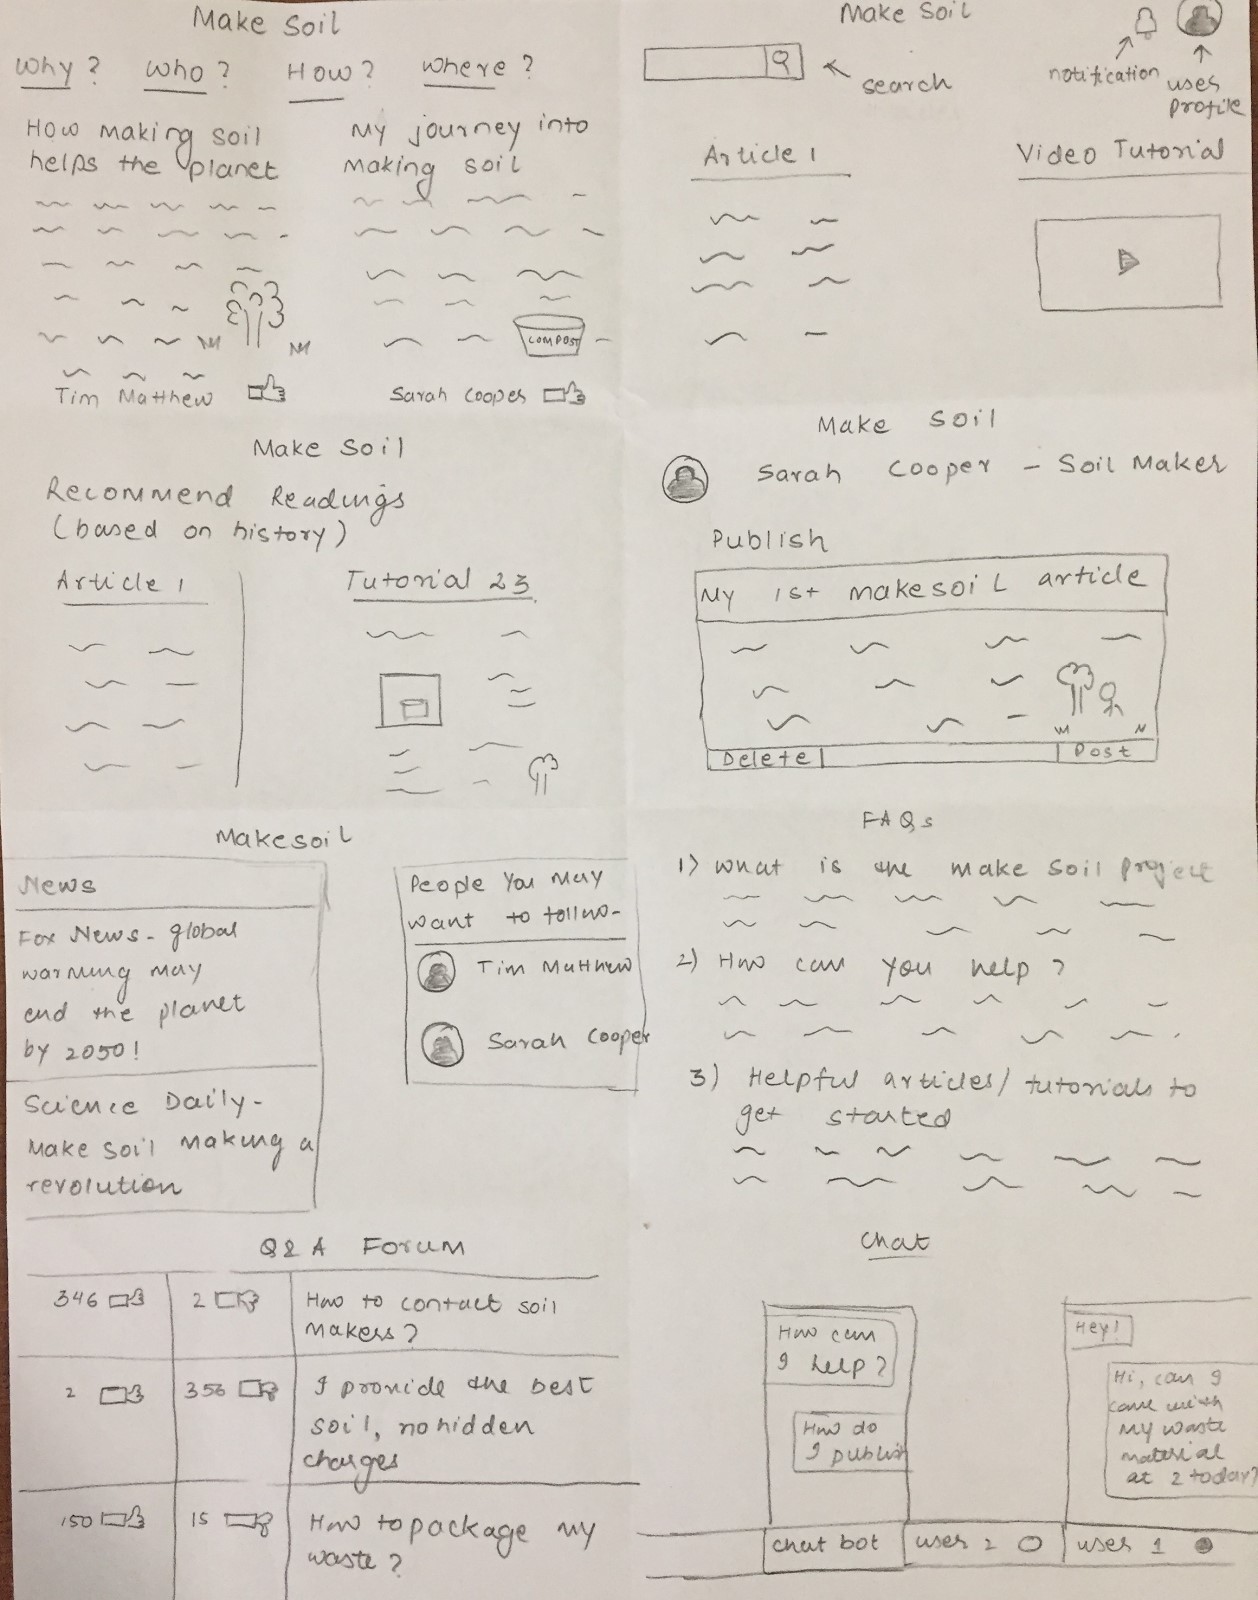 Make Soil
Why? Who? How? where?
How making soil
helps the planet
My journey into
Making soil
COMPOST
Tim Matthew
Sarah Cooper
Make Soil
search
notification
user
profile
Article 1
Video Tutorial
Make Soil
Recommend Readings
(based on history)
Article 1
Tutorial 23
Make Soil
Sarah Cooper - Soil Maker
Publish
My 1st makesoil article
Delete
Post
Makesoil
News
Fox News - global
warming may
end the planet
by 2050!
Science Daily -
Make Soil making a
revolution
People You May
want to follow-
Tim Matthew
Sarah Cooper
FAQs
1) What is the make soil project
2) How can you help?
3) Helpful articles/tutorials to
get started
Q & A Forum
346 2 How to contact soil
makers?
2 356 I provide the best
soil, no hidden
charges
150 15 How to package my
waste?
Chat
How can
I help?
How do
I publish
Hey!
Hi, can I
come with
my waste
material
at 2 today?
chat bot user 2 user 1